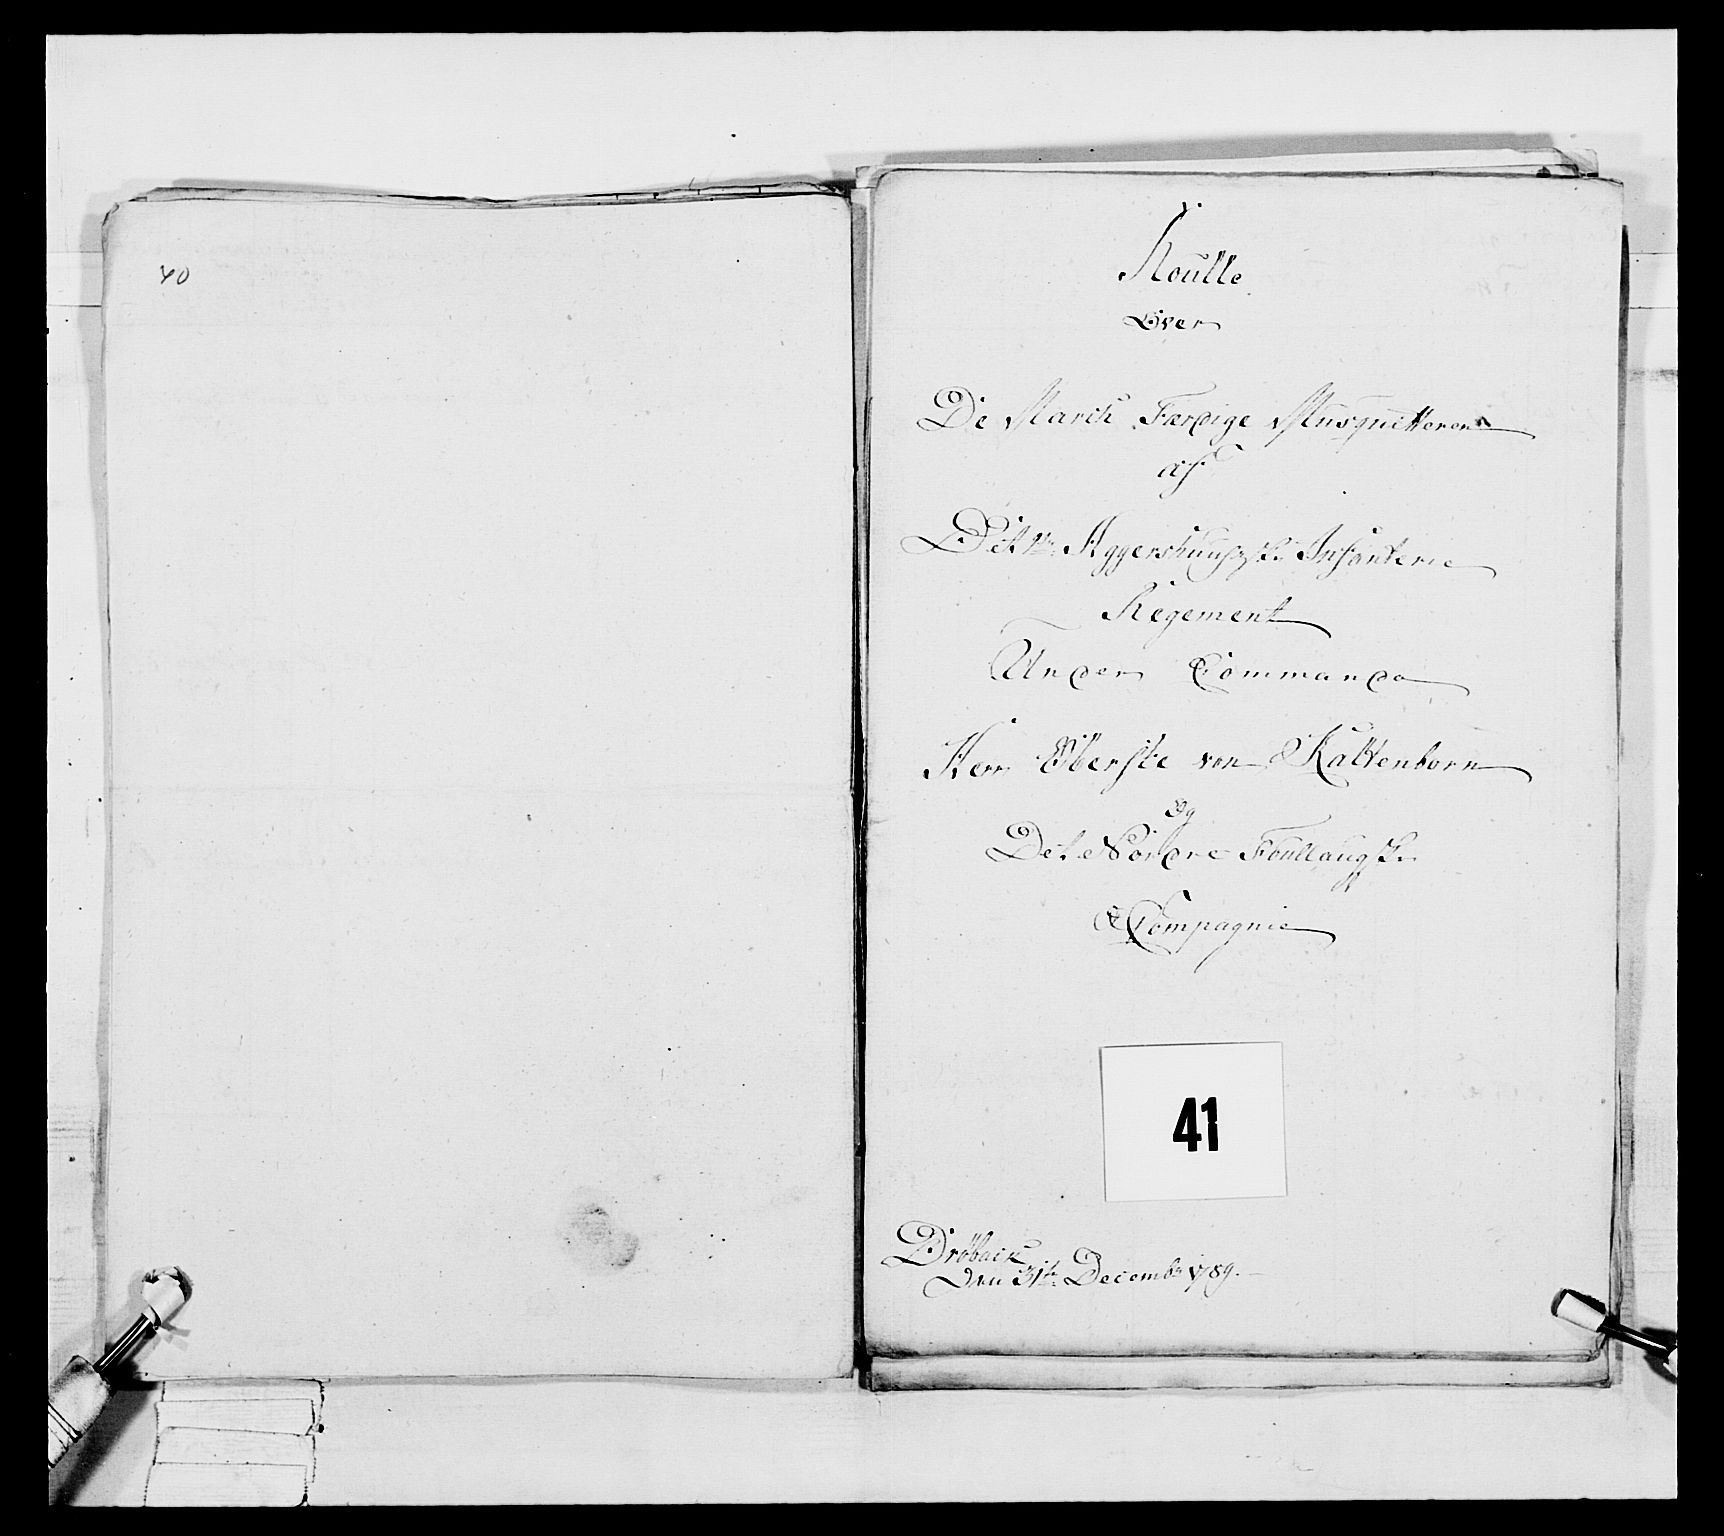 40
Roulle
Over
De March Færdige Musquetterer
af
Det 1te Aggershuusiske Infanterie
Regement
Under Commando
Herr Öberste von Kaltenborn
og
Det Nordre Foullaugske
Compagnie
41
Dröback
den 31te Decembr 1789.